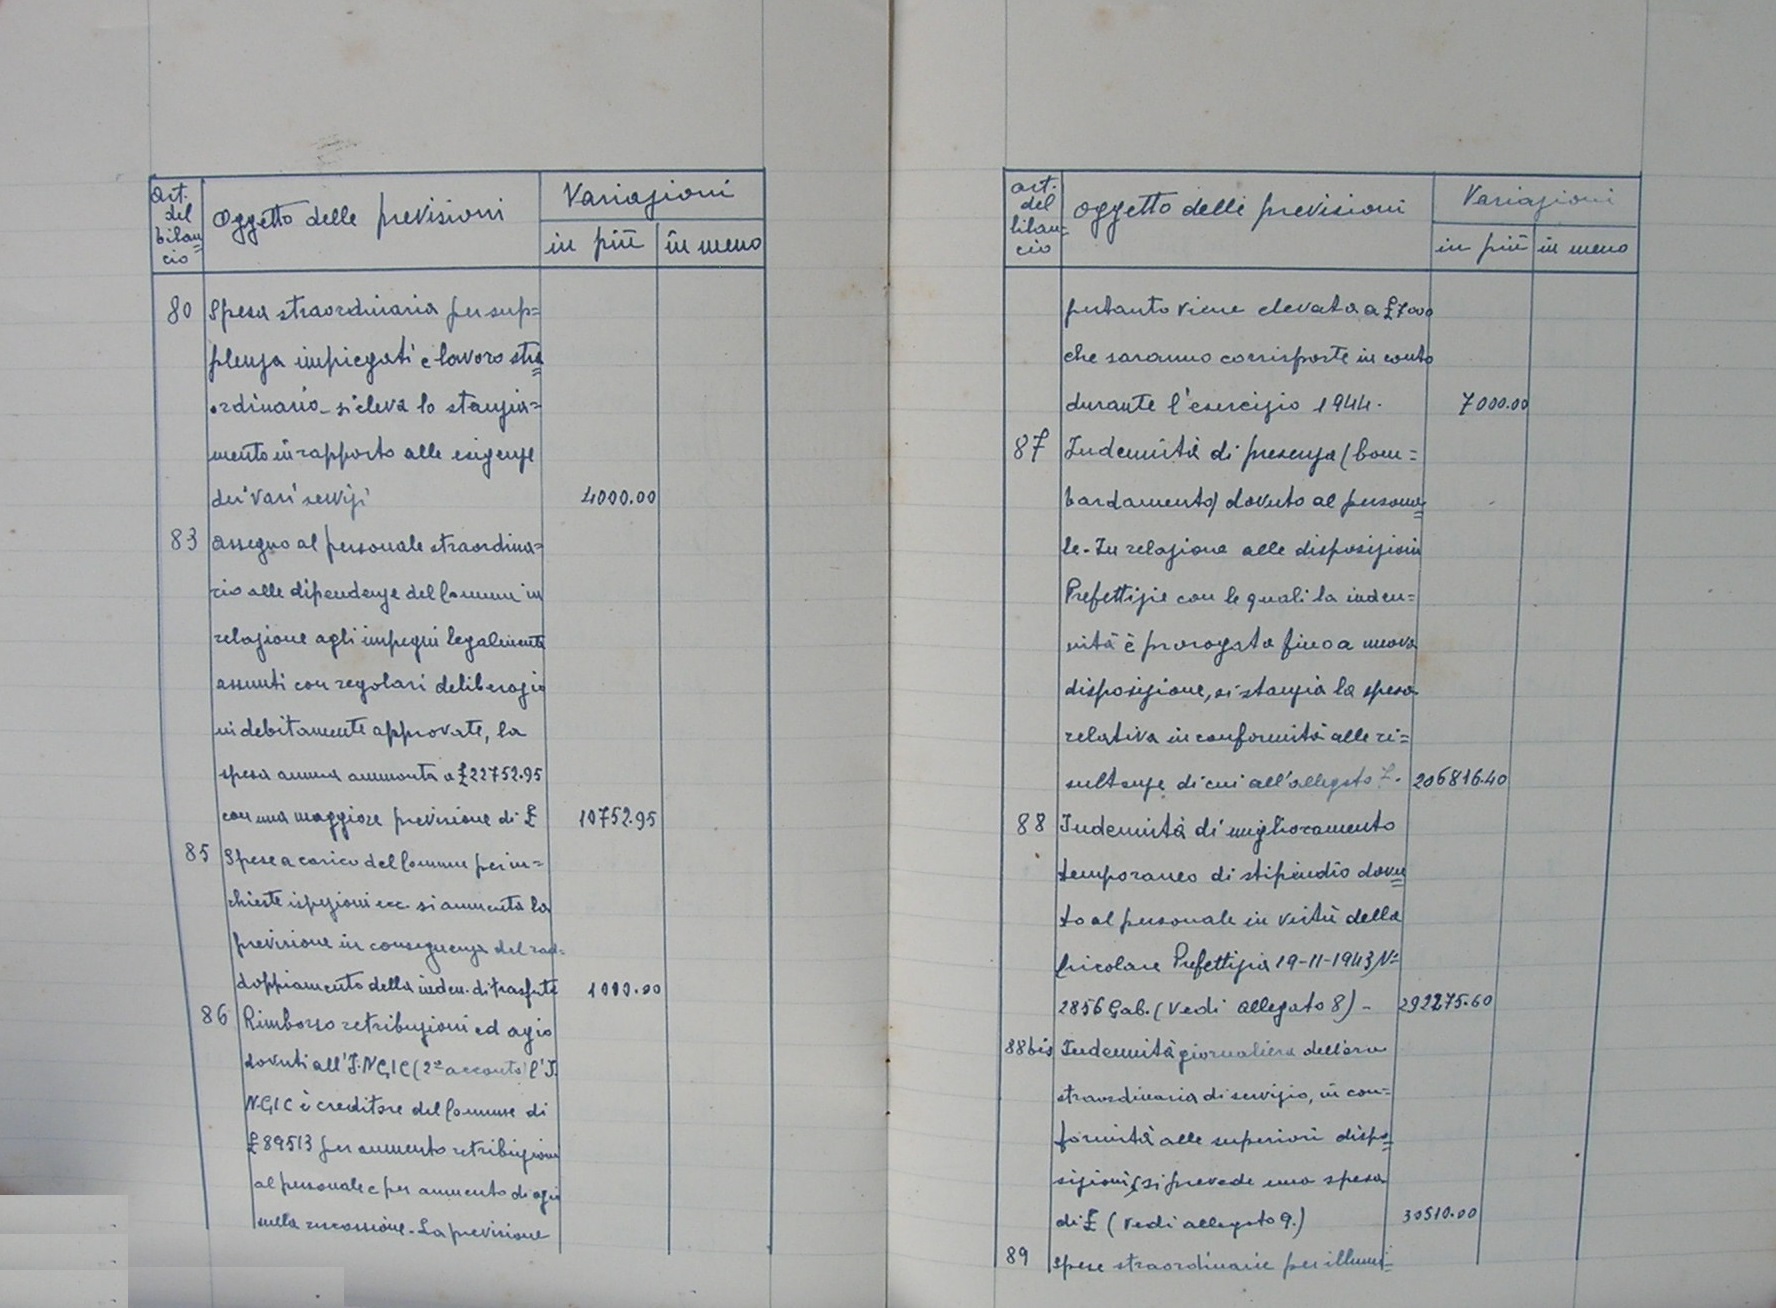 Art.
del
bilan=
cio
Oggetto delle previsioni
Variazioni
in più
in meno
80
Spesa straordinaria per sup=
plenza impiegati e lavoro stra=
ordinario - si eleva lo stanzia=
mento in rapporto alle esigenze
dei vari servizi
4000.00
83
Assegno al personale straordina=
rio alle dipendenze del Comune in
relazione agli impegni legalmente
assunti con regolari deliberazio
ni debitamente approvate, la
spesa annua ammonta a £22752.95
con una maggiore previsione di £
10752.95
85
Spese a carico del Comune per in=
chieste ispezioni ecc. si aumenta la
previsione in conseguenza del rad=
doppiamento della inden. di trasferte
1000.00
86
Rimborso retribuzioni ed agio
dovuti all'I.N.G.I.C (2° acconto) l'I.
N.G.I.C è creditore del Comune di
£89513 per aumento retribuzioni
al personale e per aumento di agio
sulla riscossione. La previsione
Art.
del
bilan=
cio
Oggetto delle previsioni
Variazioni
in più
in meno
pertanto viene elevata a £7000
che saranno corrisposte in conto
durante l'esercizio 1944.
7000.00
87
Indennità di presenza (bom=
bardamento) dovuto al persona=
le - In relazione alle disposizioni
Prefettizie con le quali la inden=
nità è prorogata fino a nuova
disposizione, si stanzia la spesa
relativa in conformità alle ri=
sultanze di cui all'allegato 7.
206816.40
88
Indennità di miglioramento
temporaneo di stipendio dovu=
to al personale in virtù della
Circolare Prefettizia 19-11-1943 N°
2856 Gab. (Vedi allegato 8) -
292275.60
88 bis
Indennità giornaliera dell'ora
straordinaria di servizio, in con=
formità alle superiori dispo=
sizioni, si prevede una spesa
di £ (Vedi allegato 9.)
30510.00
89
Spese straordinarie per illumi=